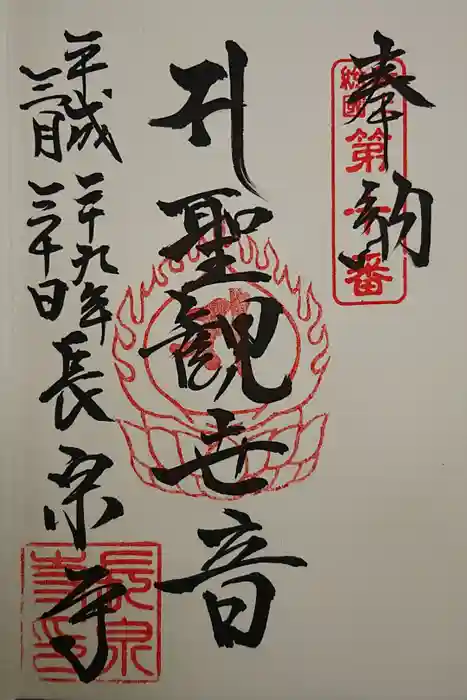 奉納
第
番
聖観世音
平成二十九年
三月三十日
長泉寺
長泉寺印